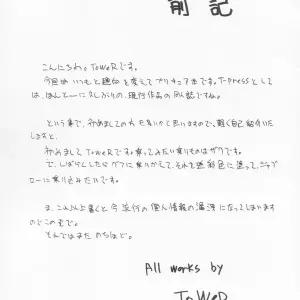 前記
こんにちわ。ToWeRです。
今回はいつもと趣向を変えてプリキュア本です。T-pressとして
は、ほんとーに久しぶりの、現行作品の同人誌ですね。
という事で、初めましての方も多いかと思いますので、軽く自己紹介いた
しますと、
初めましてToWeRです。乗ってみたい乗りものはザクです。
で、しばらくしたらグフに乗りかえて、それを迷彩色に塗って、ジャブ
ローに乗り込みたいです。
ま、これ以上書くと今流行の個人情報の漏洩になってしまいます
のでこのへんで。
それではまたのちほど。
All works by
ToWeR